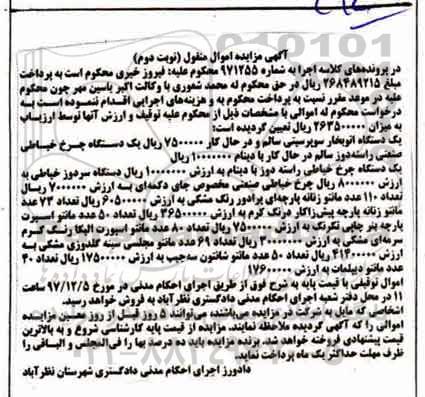 آگهی مزایده اموال منقول (نوبت دوم)
در پرونده‌های کلاسه اجرا به شماره ۹۷۱۲۵۵ محکوم علیه: فیروز خیری محکوم است به پرداخت
مبلغ ۲۶۸۴۸۹۲۱۵ ریال در حق محکوم له محمد شعوری با وکالت اکبر یاسین مهر چون محکوم
علیه در موعد مقرر نسبت به پرداخت محکوم به و هزینه‌های اجرایی اقدام ننموده است به
درخواست محکوم له اموالی با مشخصات ذیل از محکوم علیه توقیف و ارزش آنها توسط ارزیاب
به میزان ۲۶۳۵۰۰۰۰۰ ریال تعیین گردیده است:
یک دستگاه اتوبخار سوپرسیتی سالم و در حال کار ۷۵۰۰۰۰۰ ریال یک دستگاه چرخ خیاطی
صنعتی راسته‌دوز سالم در حال کار با دینام ۱۰۰۰۰۰۰۰ ریال
یک دستگاه چرخ خیاطی راسته دوز با دینام به ارزش ۱۰۰۰۰۰۰۰ ریال دستگاه سردوز خیاطی به
ارزش ۸۰۰۰۰۰۰ ریال چرخ خیاطی صنعتی مخصوص جای دکمه‌ای به ارزش ۷۰۰۰۰۰۰ ریال
تعداد ۱۱۰ عدد مانتو زنانه پارچه‌ای پرادور رنگ مشکی به ارزش ۶۰۵۰۰۰۰۰ ریال تعداد ۷۳ عدد
مانتو زنانه پارچه پیش‌زاکار درنگ کرم به ارزش ۳۶۵۰۰۰۰۰ ریال تعداد ۵۰ عدد مانتو اسپرت
پارچه بنر چاپی تکرنگ به ارزش ۷۵۰۰۰۰۰ ریال تعداد ۸۰ عدد مانتو اسپورت الیکا رنگ کرم
سرمه‌ای مشکی به ارزش ۳۰۰۰۰۰۰۰ ریال تعداد ۶۹ عدد مانتو مجلسی سینه گلدوزی مشکی به
ارزش ۴۱۴۰۰۰۰۰ ریال تعداد ۵۰ عدد مانتو شانتون سه‌جیب به ارزش ۱۷۵۰۰۰۰۰ ریال تعداد ۴۰
عدد مانتو دیپلمات به ارزش ۱۷۶۰۰۰۰۰
اموال توقیفی با قیمت پایه به شرح فوق از طریق اجرای احکام مدنی در مورخ ۹۷/۱۲/۵ ساعت
۱۱ در محل دفتر شعبه اجرای احکام مدنی دادگستری نظرآباد به فروش خواهد رسید.
اشخاصی که مایل به شرکت در مزایده می‌باشند می‌توانند ۵ روز قبل از روز معین مزایده
اموالی را که آگهی گردیده ملاحظه نمایند. مزایده از قیمت پایه کارشناسی شروع و به بالاترین
قیمت پیشنهادی فروخته خواهد شد. برنده مزایده باید ده درصد بها را فی‌المجلس و الباقی را
ظرف مهلت حداکثر یک ماه پرداخت نماید.
دادورز اجرای احکام مدنی دادگستری شهرستان نظرآباد